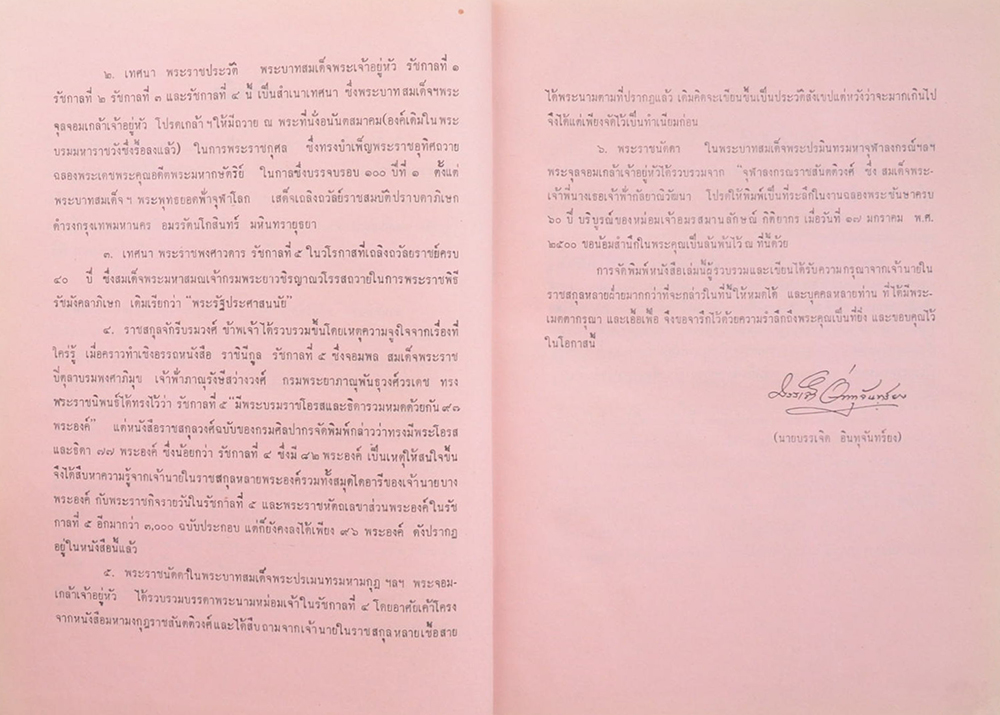 ๒. เทศนา พระราชประวัติ พระบาทสมเด็จพระเจ้าอยู่หัว รัชกาลที่ ๑
รัชกาลที่ ๒ รัชกาลที่ ๓ และรัชกาลที่ ๔ นี้ เป็นสำเนาเทศนา ซึ่งพระบาทสมเด็จฯพระ
จุลจอมเกล้าเจ้าอยู่หัว โปรดเกล้าฯให้มีถวาย ณ พระที่นั่งอนันตสมาคม(องค์เดิมในพระ
บรมมหาราชวังซึ่งรื้อลงแล้ว) ในการพระราชกุศล ซึ่งทรงบำเพ็ญพระราชอุทิศถวาย
ฉลองพระเดชพระคุณอดีตพระมหากษัตริย์ ในกาลซึ่งบรรจบรอบ ๑๐๐ ปีที่ ๑ ตั้งแต่
พระบาทสมเด็จฯ พระพุทธยอดฟ้าจุฬาโลก เสด็จเถลิงถวัลย์ราชสมบัติปราบดาภิเษก
ดำรงกรุงเทพมหานคร อมรรัตนโกสินทร์ มหินทรายุธยา
๓. เทศนา พระราชพงศาวดาร รัชกาลที่ ๕ ในวโรกาสที่เถลิงถวัลยราชย์ครบ
๔๐ ปี ซึ่งสมเด็จพระมหาสมณเจ้ากรมพระยาวชิรญาณวโรรสถวายในการพระราชพิธี
รัชมังคลาภิเษก เดิมเรียกว่า "พระรัฐประศาสนนัย"
๔. ราชสกุลจักรีบรมวงศ์ ข้าพเจ้าได้รวบรวมขึ้นโดยเหตุความจูงใจจากเรื่องที่
ใคร่รู้ เมื่อคราวทำเชิงอรรถหนังสือ ราชินีกูล รัชกาลที่ ๕ ซึ่งจอมพล สมเด็จพระราช
ปิตุลาบรมพงศาภิมุข เจ้าฟ้าภาณุรังษีสว่างวงศ์ กรมพระยาภาณุพันธุวงศ์วรเดช ทรง
พระราชนิพนธ์ได้ทรงไว้ว่า รัชกาลที่ ๕ "มีพระบรมราชโอรสและธิดารวมหมดด้วยกัน ๙๗
พระองค์" แต่หนังสือราชสกุลวงศ์ฉบับของกรมศิลปากรจัดพิมพ์กล่าวว่าทรงมีพระโอรส
และธิดา ๗๗ พระองค์ ซึ่งน้อยกว่า รัชกาลที่ ๔ ซึ่งมี ๘๒ พระองค์ เป็นเหตุให้สนใจขึ้น
จึงได้สืบหาความรู้จากเจ้านายในราชสกุลหลายพระองค์รวมทั้งสมุดไดอารีของเจ้านายบาง
พระองค์ กับพระราชกิจรายวันในรัชกาลที่ ๕ และพระราชหัตถเลขาส่วนพระองค์ในรัช
กาลที่ ๕ อีกมากว่า ๓,๐๐๐ ฉบับประกอบ แต่ก็ยังคงลงได้เพียง ๙๖ พระองค์ ดังปรากฏ
อยู่ในหนังสือนี้แล้ว
๕. พระราชนัดดาในพระบาทสมเด็จพระปรเมนทรมหามกุฎ ฯลฯ พระจอม-
เกล้าเจ้าอยู่หัว ได้รวบรวมบรรดาพระนามหม่อมเจ้าในรัชกาลที่ ๔ โดยอาศัยเค้าโครง
จากหนังสือมหามงกุฎราชสันตติวงศ์และได้สืบถามจากเจ้านายในราชสกุลหลายเชื้อสาย
ได้พระนามตามที่ปรากฏแล้ว เดิมคิดจะเขียนขึ้นเป็นประวัติสังเขปแต่หวังว่าจะมากเกินไป
จึงได้แต่เพียงจัดไว้เป็นทำเนียมก่อน
๖. พระราชนัดดา ในพระบาทสมเด็จพระปรมินทรมหาจุฬาลงกรณ์ฯลฯ
พระจุลจอมเกล้าเจ้าอยู่หัวได้รวบรวมจาก "จุฬาลงกรณราชสันตติวงศ์ ซึ่ง สมเด็จพระ-
เจ้าพี่นางเธอเจ้าฟ้ากัลยาณิวัฒนา โปรดให้พิมพ์เป็นที่ระลึกในงานฉลองพระชันษาครบ
๖๐ ปี บริบูรณ์ของหม่อมเจ้าอมรสมานลักษณ์ กิติยากร เมื่อวันที่ ๑๗ มกราคม พ.ศ.
๒๕๐๐ ขอน้อมสำนึกในพระคุณเป็นล้นพ้นไว้ ณ ที่นี้ด้วย
การจัดพิมพ์หนังสือเล่มนี้ผู้รวบรวมและเขียนได้รับความกรุณาจากเจ้านายใน
ราชสกุลหลายฝ่ายมากกว่าที่จะกล่าวในที่นี้ให้หมดได้ และบุคคลหลายท่าน ที่ได้มีพระ-
เมตตากรุณา และเอื้อเฟื้อ จึงขอจารึกไว้ด้วยความรำลึกถึงพระคุณเป็นที่ยิ่ง และขอบคุณไว้
ในโอกาสนี้
(นายบรรเจิด อินทุจันทร์ยง)